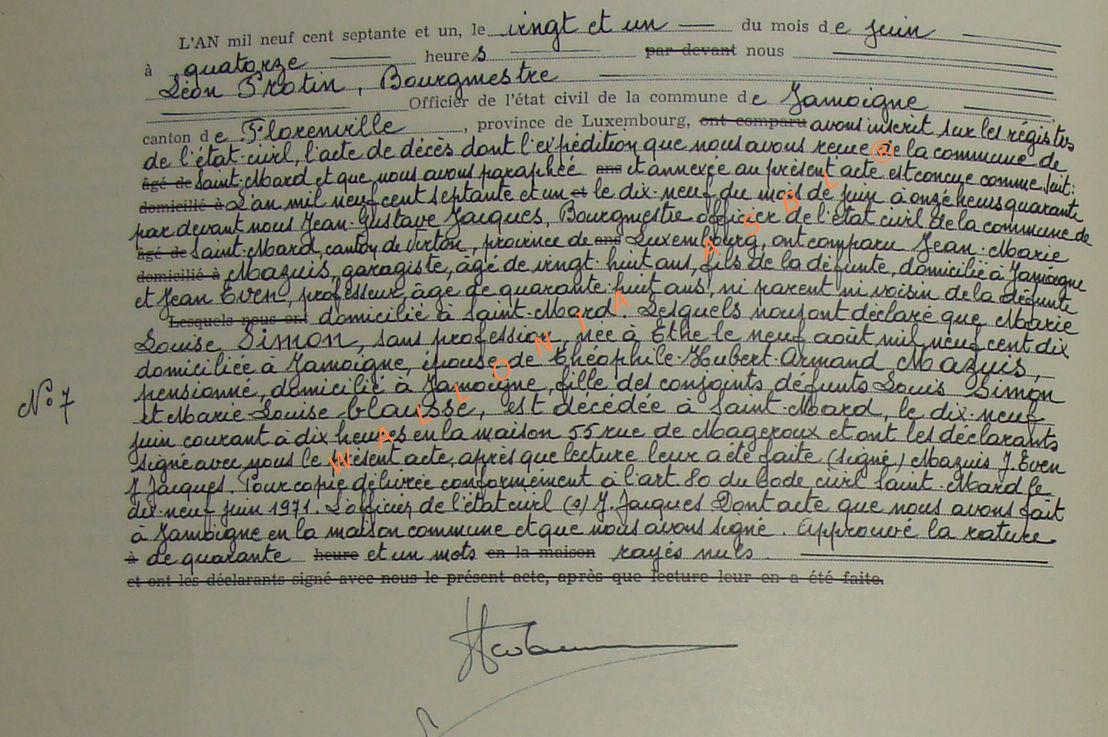 L'AN mil neuf cent septante et un, le vingt et un du mois de juin
à quatorze heures par devant nous
Léon Protin, Bourgmestre
Officier de l'état civil de la commune de Jamoigne
canton de Florenville, province de Luxembourg, ont comparu avons inscrit sur les régistres
de l'état-civil, l'acte de décès dont l'expédition que nous avons reçue de la commune de
âgé de Saint-Mard et que nous avons paraphée ans et annexée au présent acte est conçue comme suit:
domicilié à L'an mil neuf cent septante et un et le dix-neuf du mois de juin à onze heures quarante
par devant nous Jean-Gustave Jacques, Bourgmestre officier de l'état civil de la commune de
âgé de Saint-Mard, canton de Virton, province de ans Luxembourg, ont comparu Jean-Marie
domicilié à Mazuis, garagiste, âgé de vingt-huit ans, fils de la défunte, domicilié à Jamoigne
et Jean Even, professeur, âgé de quarante-huit ans, ni parent ni voisin de la défunte
Lesquels nous ont domicilié à Saint-Mard. Lesquels nous ont déclaré que Marie
Louise Simon, sans profession, née à Ethe le neuf août mil neuf cent dix
domiciliée à Jamoigne, épouse de Théophile-Hubert-Armand Mazuis,
pensionné, domicilié à Jamoigne, fille des conjoints défunts Louis Simon
N° 7
et Marie-Louise Clausse, est décédée à Saint-Mard, le dix-neuf
juin courant à dix heures en la maison 55 rue de Mageroux et ont les déclarants
signé avec nous le présent acte, après que lecture leur a été faite (signé) Mazuis J. Even
J. Jacques. Pour copie délivrée conformément à l'art 80 du Code civil Saint-Mard le
dix-neuf juin 1971. L'officier de l'état civil (s) J. Jacques Dont acte que nous avons fait
à Jamoigne en la maison commune et que nous avons signé. Approuvé la rature
à de quarante heure et un mots en la maison rayés nuls.
et ont les déclarants signé avec nous le présent acte, après que lecture leur en a été faite.
WALLONIA ASBL @